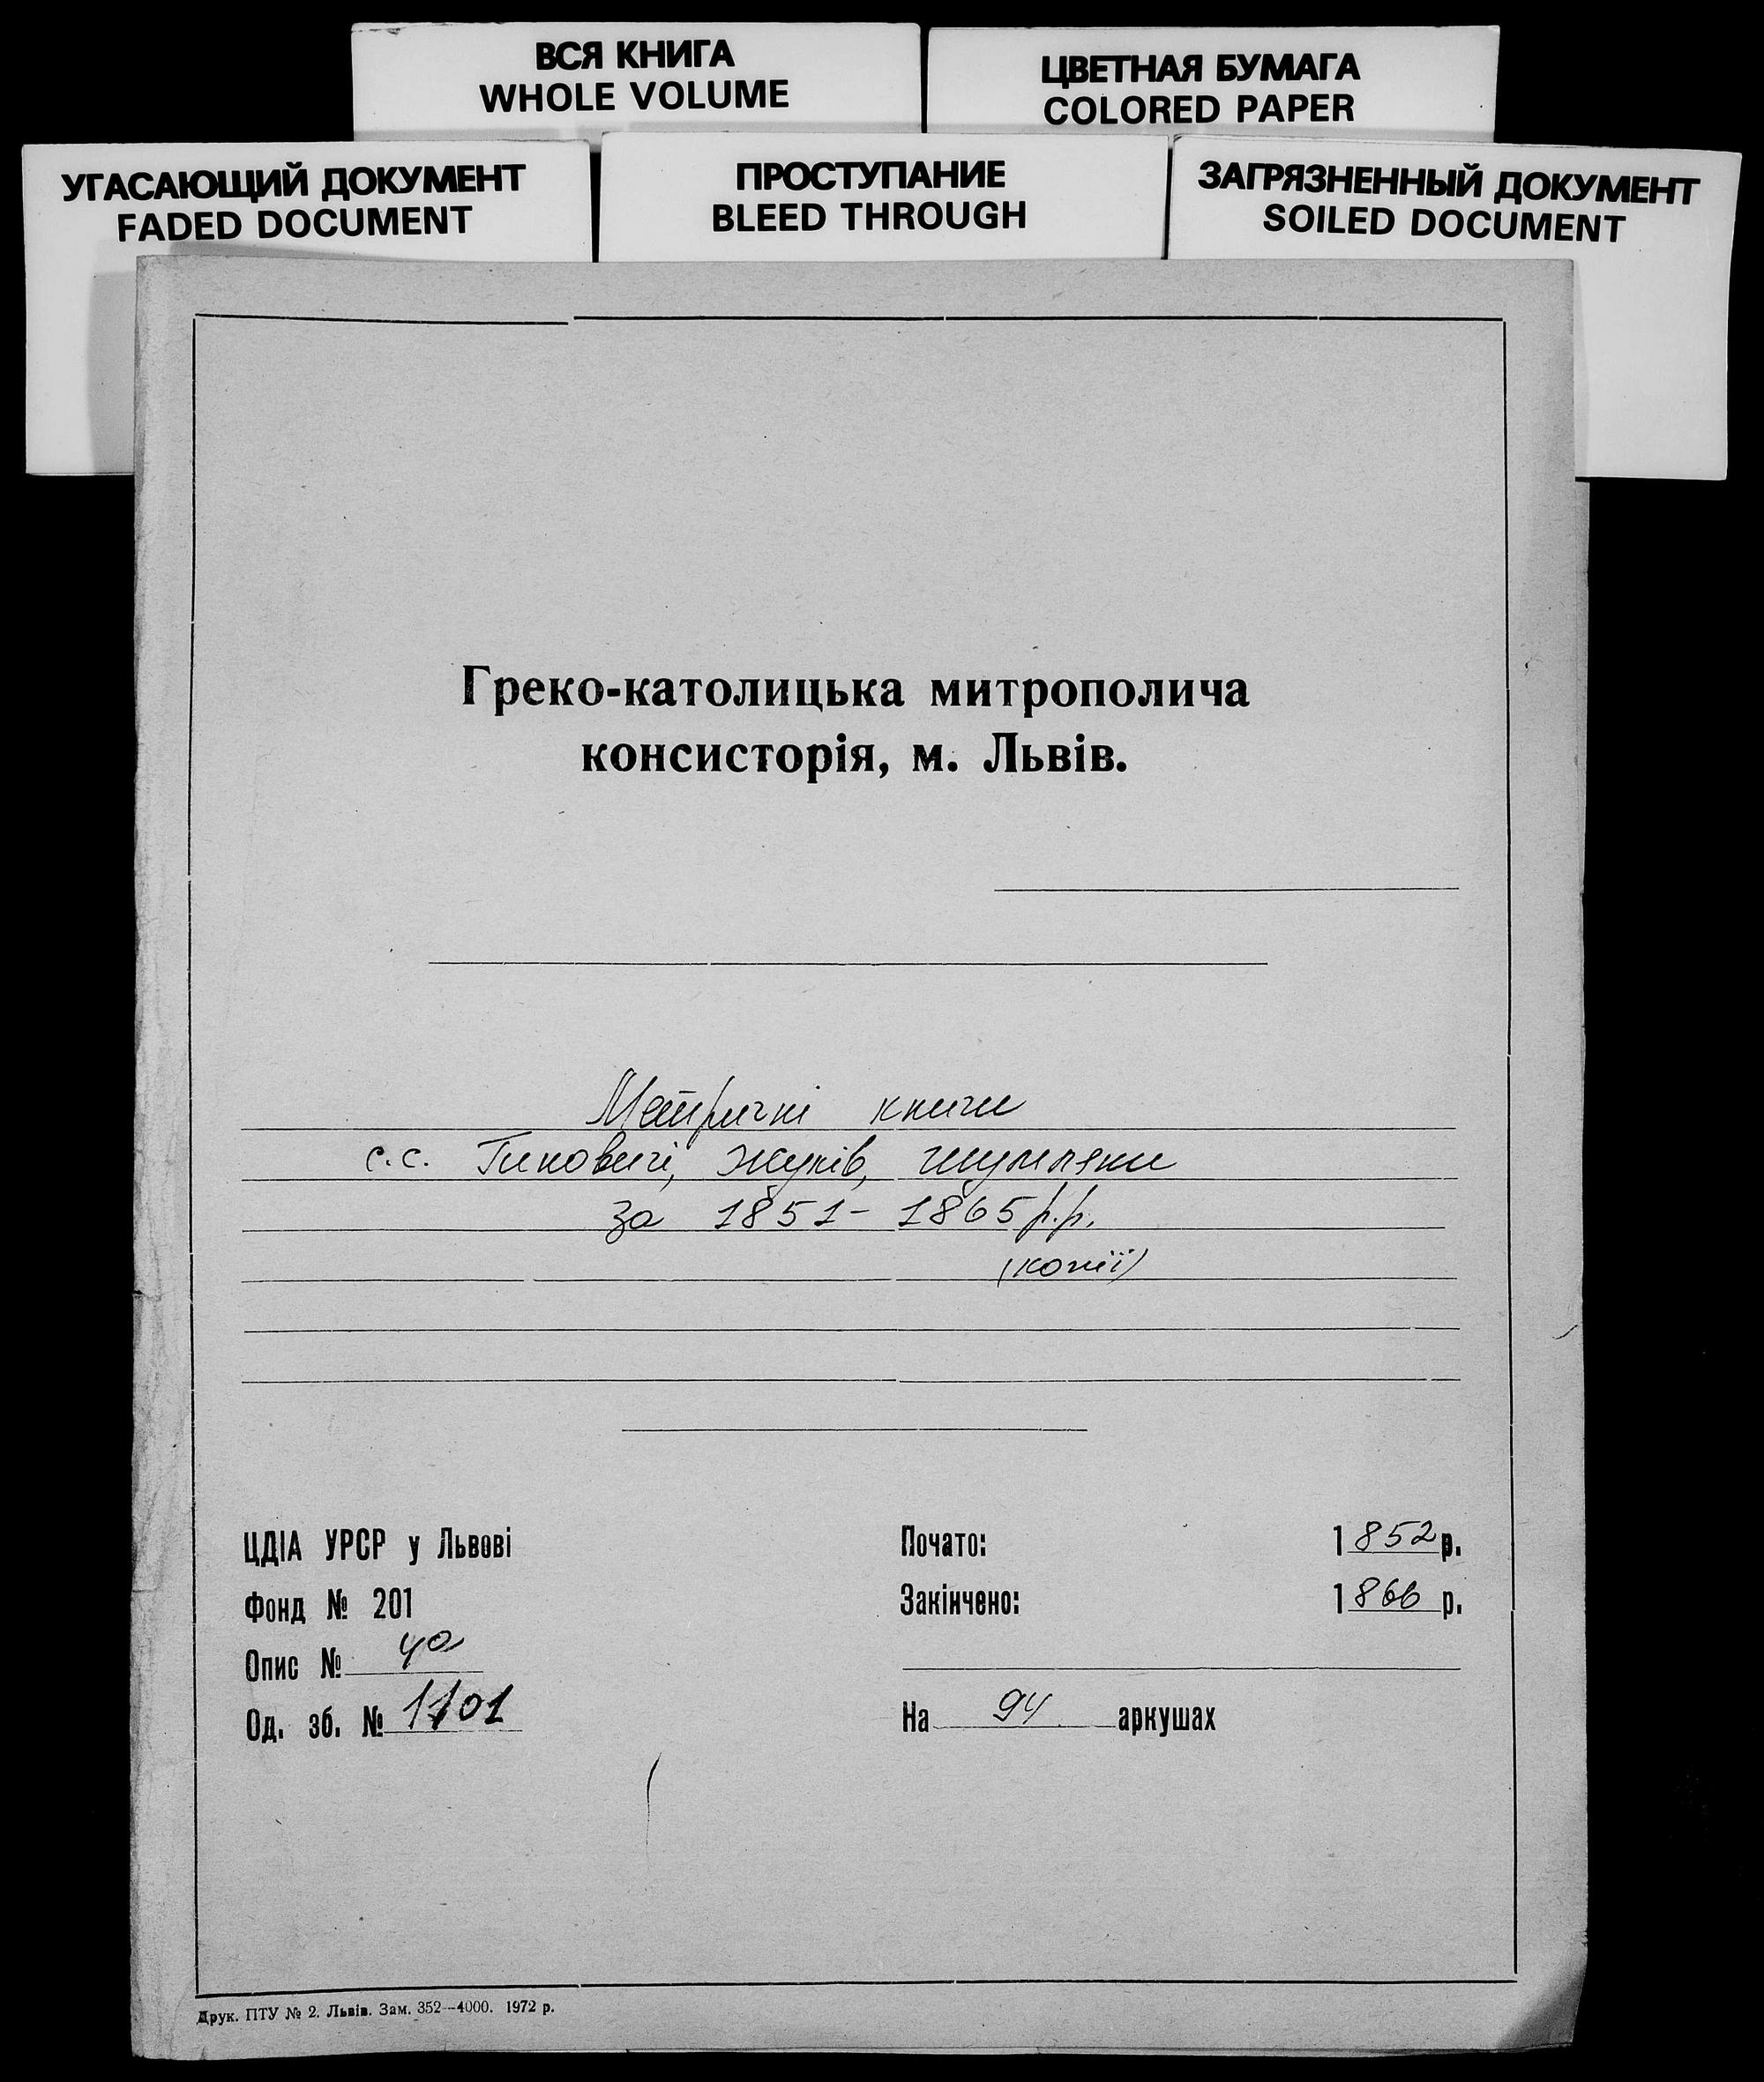 ВСЯ КНИГА
WHOLE VOLUME
ЦВЕТНАЯ БУМАГА
COLORED PAPER
УГАСАЮЩИЙ ДОКУМЕНТ
FADED DOCUMENT
ПРОСТУПАНИЕ
BLEED THROUGH
ЗАГРЯЗНЕННЫЙ ДОКУМЕНТ
SOILED DOCUMENT
Греко-католицька митрополича
консисторія, м. Львів.
Метричні книги
с.с. Гиновичі, Жуків, Шумляни
за 1851- 1865 р.р.
(копії)
ЦДІА УРСР у Львові
Фонд № 201
Опис № 4а
Од. зб. № 1101
Почато: 1852 р.
Закінчено: 1866 р.
На 94 аркушах
Друк. ПТУ № 2. Львів. Зам. 352—4000. 1972 р.